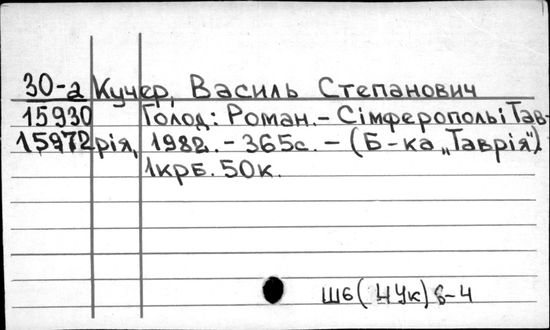 30-а Кучер, Василь Степанович
15930 Голод: Роман.- Сімферополь: Тав-
15972 рія, 1982. - 365с. - (Б-ка „Таврія").
1крб. 50к.
Ш6(4Ук)6-4